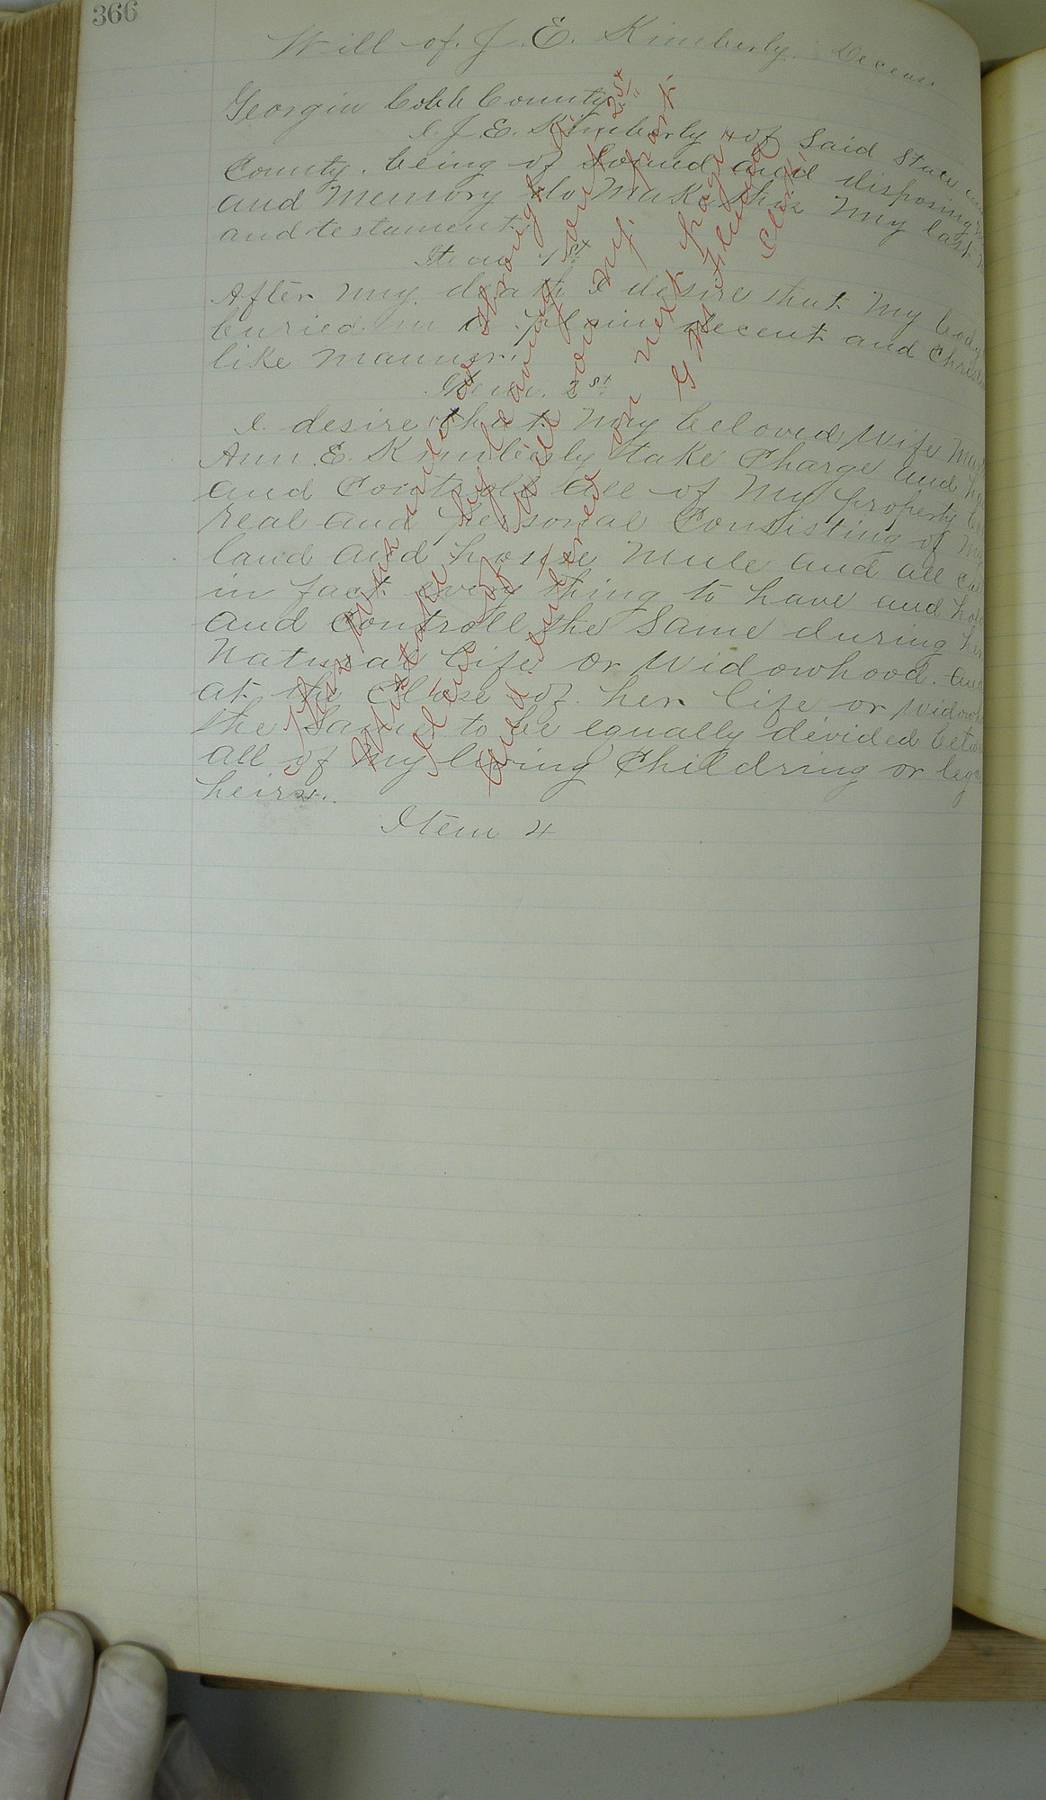 366
Will of J. E. Kimberly Deceas
Georgia Cobb County
I. J. E. Kimberly of said State and
County. being of Sound and disposing
and Memory do Make this My last
and testament.
Item 1st
After my death I desire that My body
buried in a plain decent and Christ
like manner.
Item. 2st
I desire that My beloved Wife
Ann E. Kimberly take Charge and
and Controle all of My property
real and personal Consisting of
land and house Mule and all
in fact every thing to have and hold
and Controll the Same during her
Natural life or Widowhood. and
at the Close of her life or Widow
the same to be equally devided betw
all of My living Childring or leg
heirs.
Item 4
This was ruled through
Mistake by leaving out 2st
Item of Will on my part
And entered on next page
Clerk